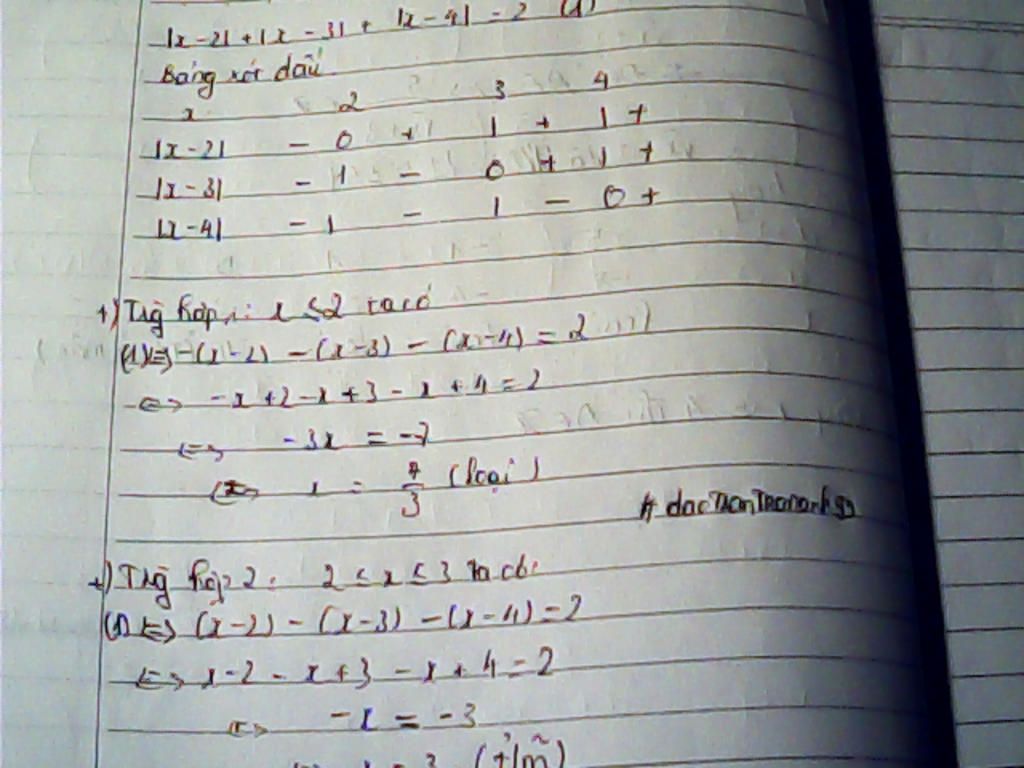 |x-2| + |x-3| + |x-4| = 2 (1)
Bảng xét dấu
x 2 3 4
|x-2| - 0 + | + | +
|x-3| - | - 0 + | +
|x-4| - | - | - 0 +
+) Trg hợp 1: x ≤ 2 ta có
(1) <=> -(x-2) - (x-3) - (x-4) = 2
<=> -x+2-x+3-x+4=2
<=> -3x = -7
<=> x = 7/3 (loại)
+) Trg hợp 2: 2 ≤ x ≤ 3 ta có:
(1) <=> (x-2) - (x-3) - (x-4) = 2
<=> x-2-x+3-x+4=2
<=> -x = -3
x = 3 (t/m)